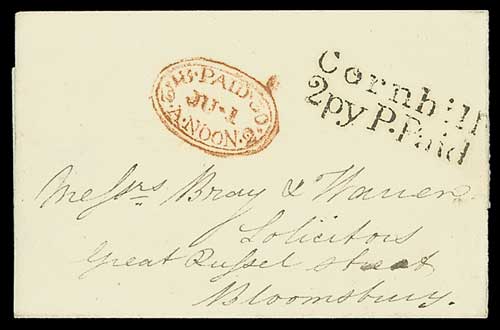 PAID
JU·1
A·NOON·2
Cornhill
2py P.Paid
Messrs Bray & Warren
Solicitors
Great Russel street
Bloomsbury.